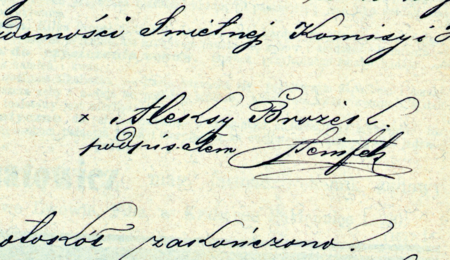 adomości Swietnej Komisyi
× Aleksy Brożek.
podpisałem
otokół zakończono.